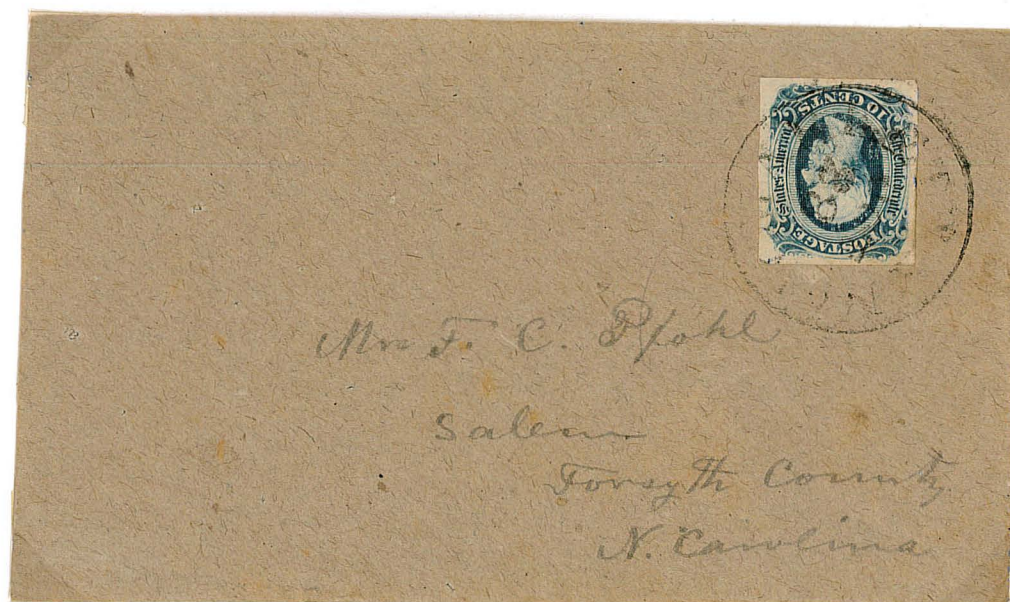 The Confederate States of America
POSTAGE
10 CENTS
Mrs F. C. Pfohl
Salem
Forsyth County
N. Carolina